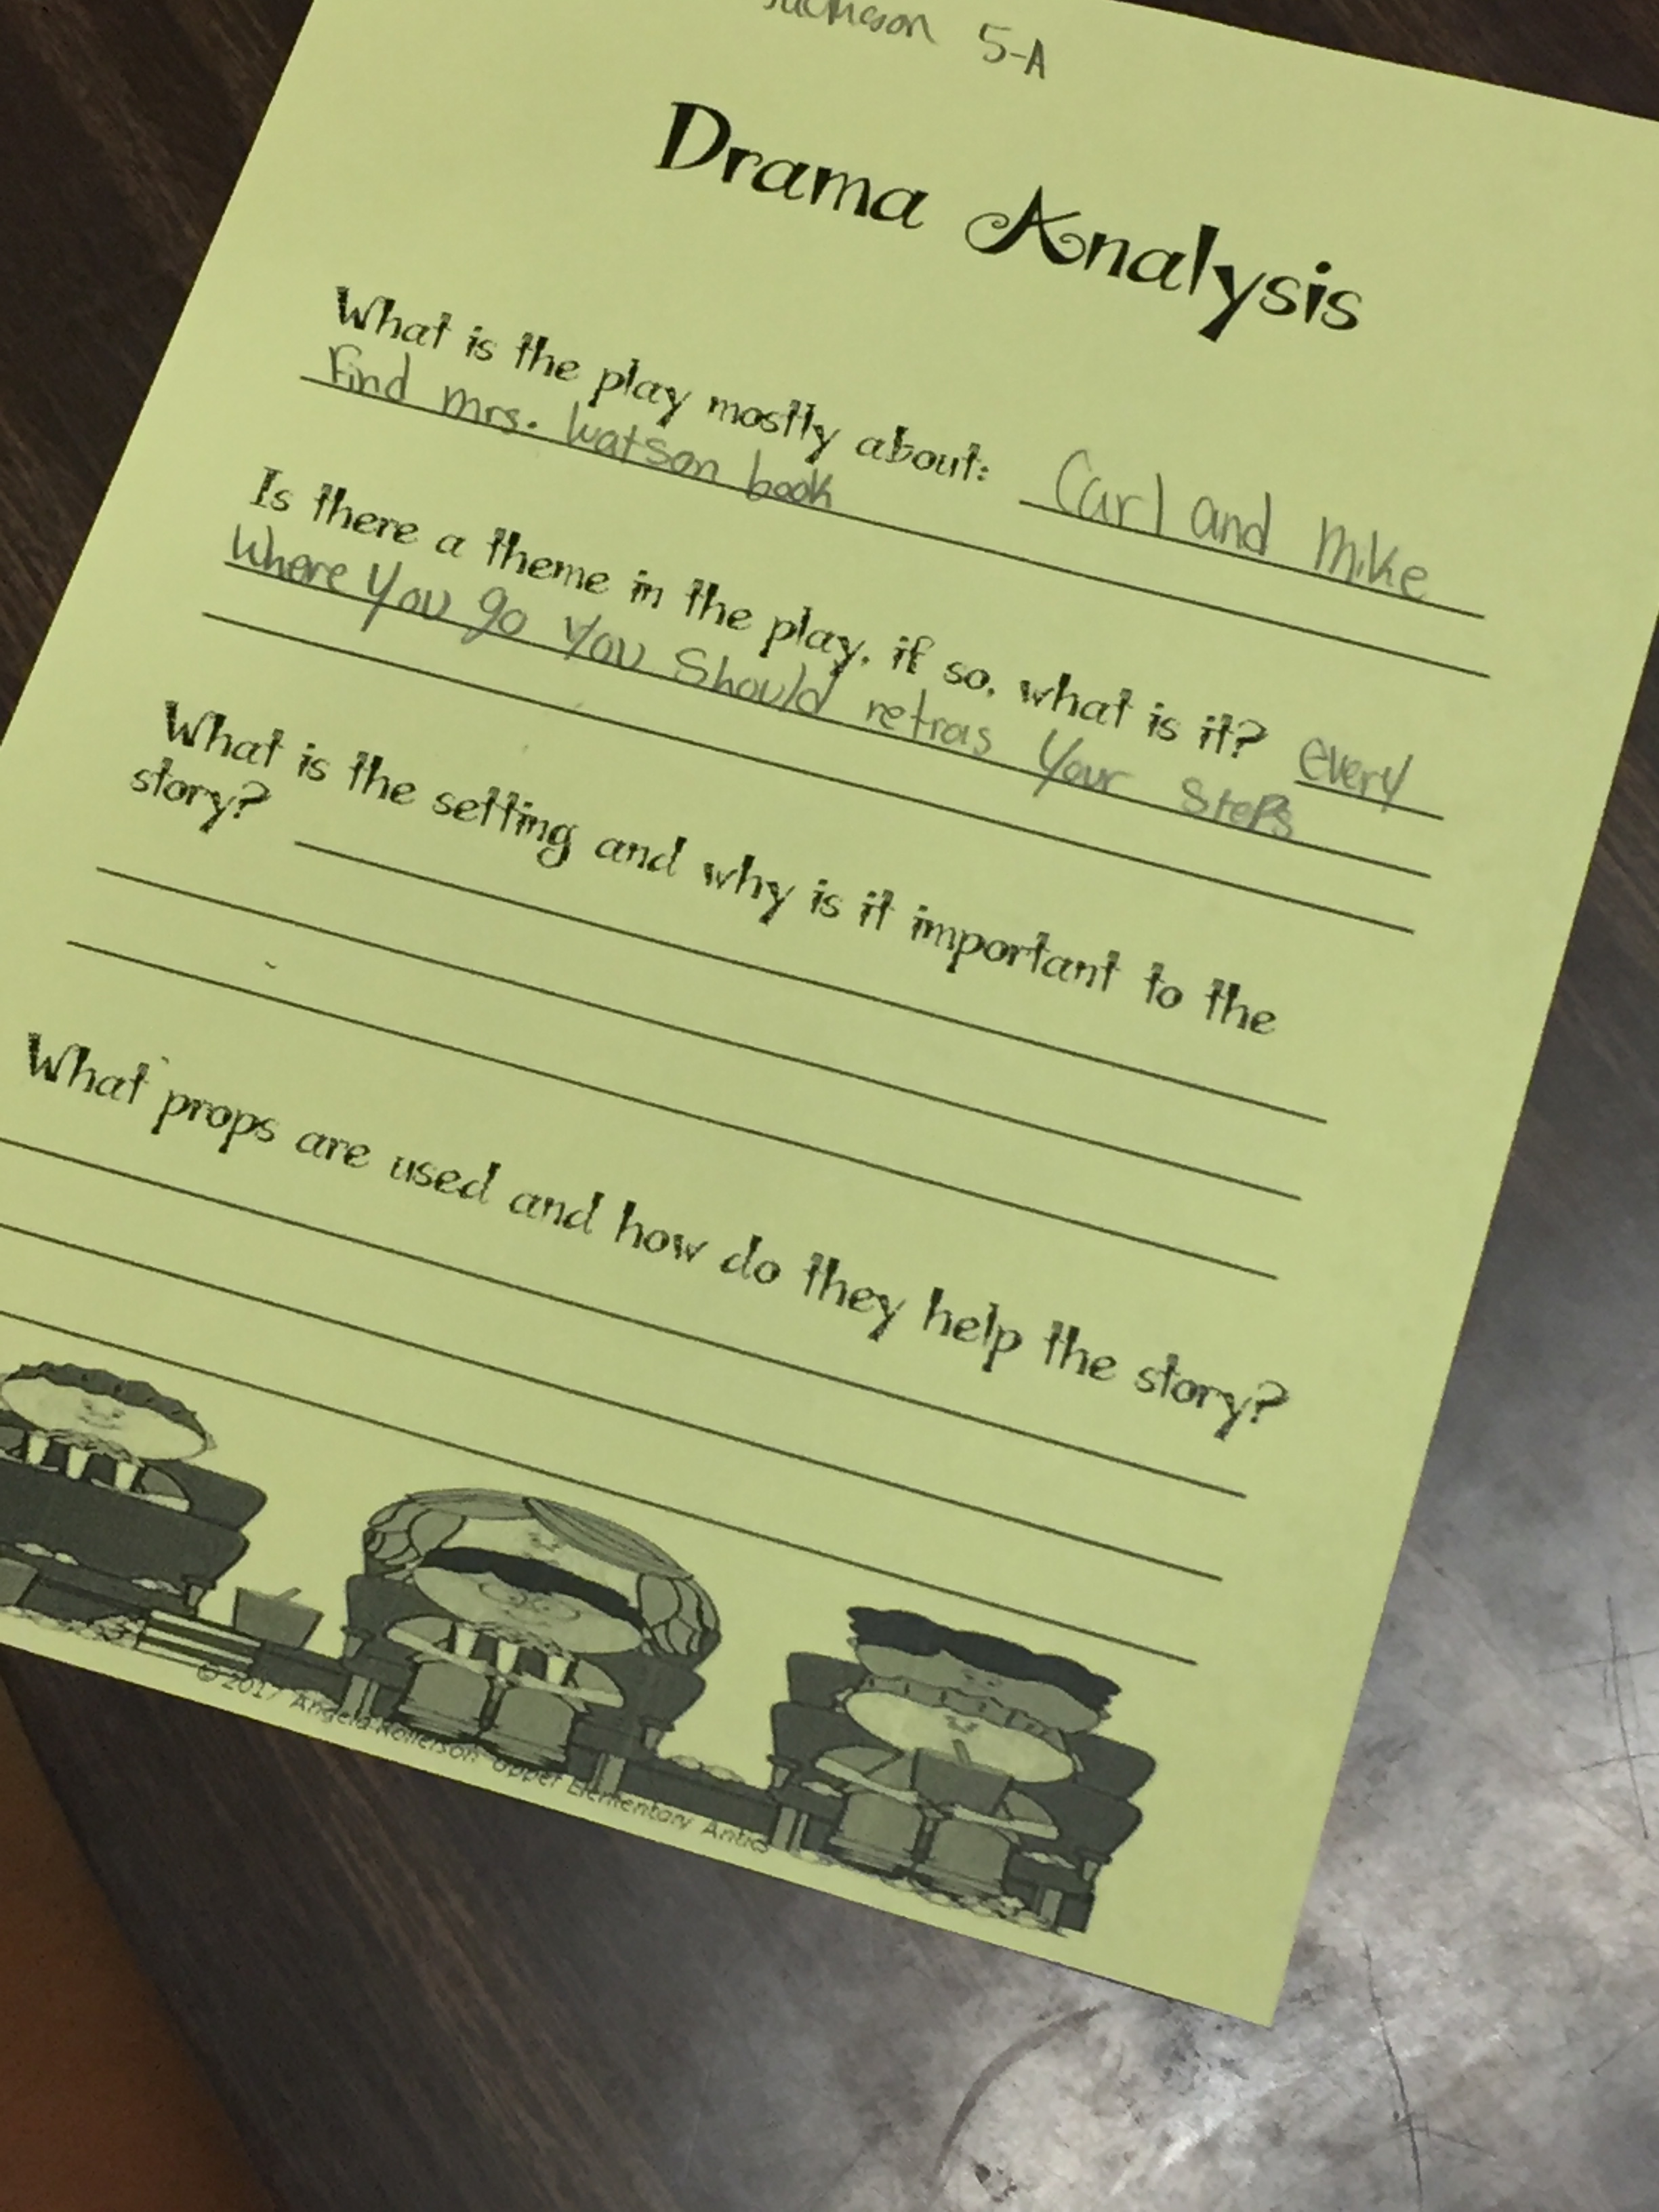 5-A
Drama Analysis
What is the play mostly about: Carl and Mike
Find mrs. Watson book
Is there a theme in the play, if so, what is it? every
Where you go you Should retras your steps
What is the setting and why is it important to the
story?
What props are used and how do they help the story?
© 2017 Angela Rollerson Upper Elementary Antics